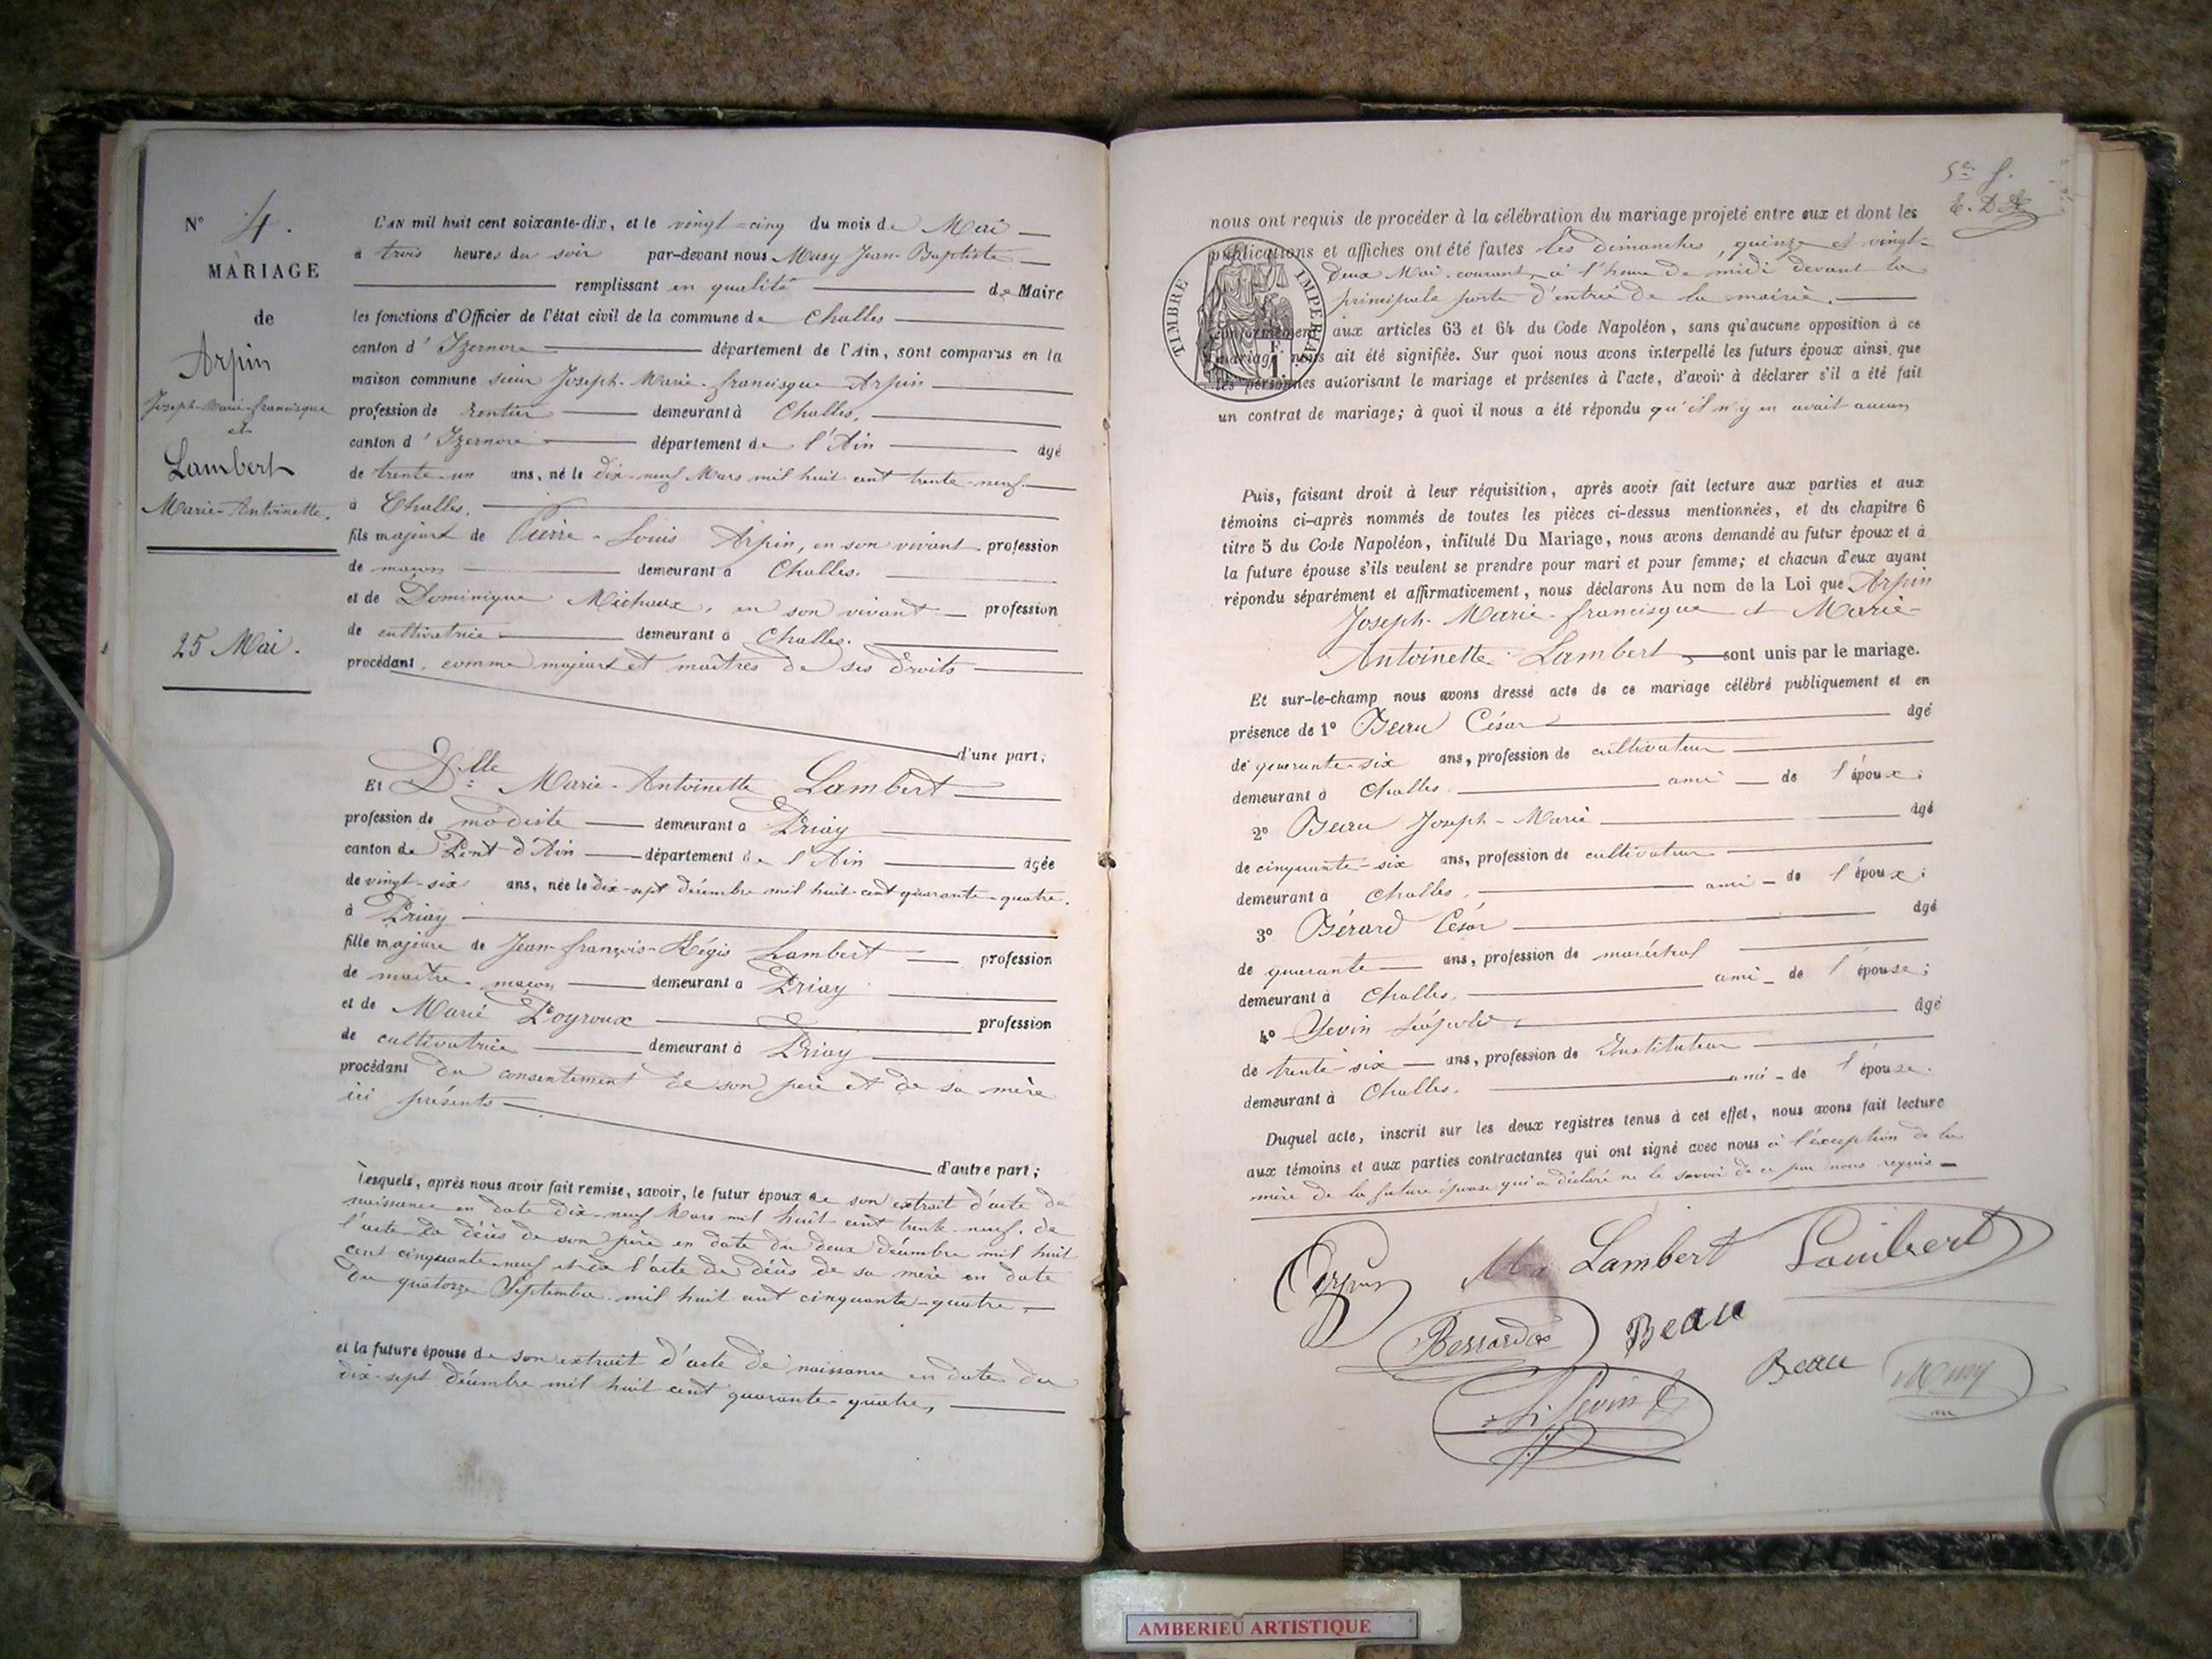 N° 4.
MARIAGE
de
Arpin
Joseph-Marie-francisque
et
Lambert
Marie-Antoinette.
25 Mai.
L'AN mil huit cent soixante-dix, et le vingt-cinq du mois de Mai
à trois heures du soir par-devant nous Musy Jean-Baptiste
remplissant en qualité de Maire
les fonctions d'Officier de l'état civil de la commune de Challes
canton d'Izernore département de l'Ain, sont comparus en la
maison commune sieur Joseph-Marie-francisque Arpin
profession de rentier demeurant à Challes,
canton d'Izernore département de l'Ain agé
de trente-un ans, né le dix-neuf Mars mil huit cent trente-neuf
à Challes,
fils majeur de Pierre-Louis Arpin, en son vivant profession
de maçon demeurant à Challes.
et de Dominique Michaux, en son vivant profession
de cultivatrice demeurant à Challes.
procédant comme majeur et maître de ses droits
d'une part;
Et Dlle Marie-Antoinette Lambert
profession de modiste demeurant à Priay
canton de Pont d'Ain département de l'Ain agée
de vingt-six ans, née le dix-sept décembre mil huit cent quarante-quatre.
à Priay
fille majeure de Jean-françois-Régis Lambert profession
de maître maçon demeurant à Priay
et de Marie Poyroux profession
de cultivatrice demeurant à Priay
procédant du consentement de son père et de sa mère
ici présents
d'autre part;
Lesquels, après nous avoir fait remise, savoir, le futur époux de son extrait d'acte de
naissance en date dix-neuf Mars mil huit cent trente-neuf. de
l'acte de décès de son père en date du deux décembre mil huit
cent cinquante-neuf et de l'acte de décès de sa mère en date
du quatorze Septembre mil huit cent cinquante-quatre,
et la future épouse de son extrait d'acte de naissance en date du
dix-sept décembre mil huit cent quarante-quatre,
nous ont requis de procéder à la célébration du mariage projeté entre eux et dont les
publications et affiches ont été faites les dimanches, quinze et vingt-
deux Mai courant, à l'heure de midi devant la
principale porte d'entrée de la mairie.
conformément aux articles 63 et 64 du Code Napoléon, sans qu'aucune opposition à ce
mariage nous ait été signifiée. Sur quoi nous avons interpellé les futurs époux ainsi que
les personnes autorisant le mariage et présentes à l'acte, d'avoir à déclarer s'il a été fait
un contrat de mariage; à quoi il nous a été répondu qu'il n'y en avait aucun
TIMBRE IMPERIAL
1 F.
Puis, faisant droit à leur réquisition, après avoir fait lecture aux parties et aux
témoins ci-après nommés de toutes les pièces ci-dessus mentionnées, et du chapitre 6
titre 5 du Code Napoléon, intitulé Du Mariage, nous avons demandé au futur époux et à
la future épouse s'ils veulent se prendre pour mari et pour femme; et chacun d'eux ayant
répondu séparément et affirmativement, nous déclarons Au nom de la Loi que Arpin
Joseph-Marie-francisque et Marie-
Antoinette Lambert, sont unis par le mariage.
Et sur-le-champ nous avons dressé acte de ce mariage célébré publiquement et en
présence de 1° Beau César agé
de quarante-six ans, profession de cultivateur
demeurant à Challes. ami de l'époux;
2° Beau Joseph-Marie agé
de cinquante-six ans, profession de cultivateur
demeurant à Challes, ami de l'époux;
3° Bérard César agé
de quarante ans, profession de maréchal
demeurant à Challes. ami de l'épouse;
4° Sevin Léopold agé
de trente-six ans, profession de Instituteur
demeurant à Challes. ami de l'épouse.
Duquel acte, inscrit sur les deux registres tenus à cet effet, nous avons fait lecture
aux témoins et aux parties contractantes qui ont signé avec nous à l'exception de la
mère de la future épouse qui a déclaré ne le savoir de ce par nous requis
Arpin Lambert Lambert
Beau
Beau Musy
Sevin
AMBERIEU ARTISTIQUE